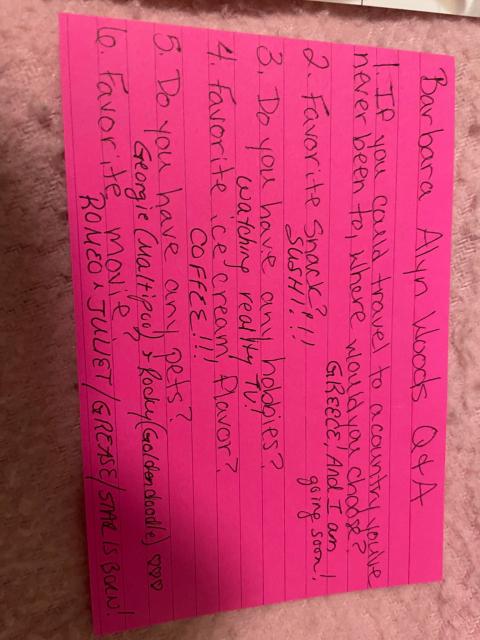 Barbara Alyn Woods Q+A
1. If you could travel to a country you've
never been to, where would you choose?
GREECE! And I am
going soon!
2. Favorite Snack?
SUSHI!!!
3. Do you have any hobbies?
Watching reality TV!
4. Favorite ice cream flavor?
COFFEE!!!
5. Do you have any pets?
Georgie (Maltipoo) + Rocky (Goldendoodle) ♡♡♡
6. Favorite movie
ROMEO + JULIET / GREASE / STAR IS BORN!